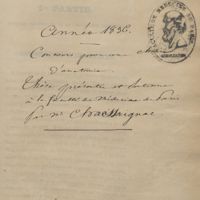 Année 1836.
Concours pour une chaire
d'anatomie.
Thèse présentée et soutenue
à la faculté de Médecine de Paris
par Mr Chassaignac
FACULTÉ DE MÉDECINE DE PARIS